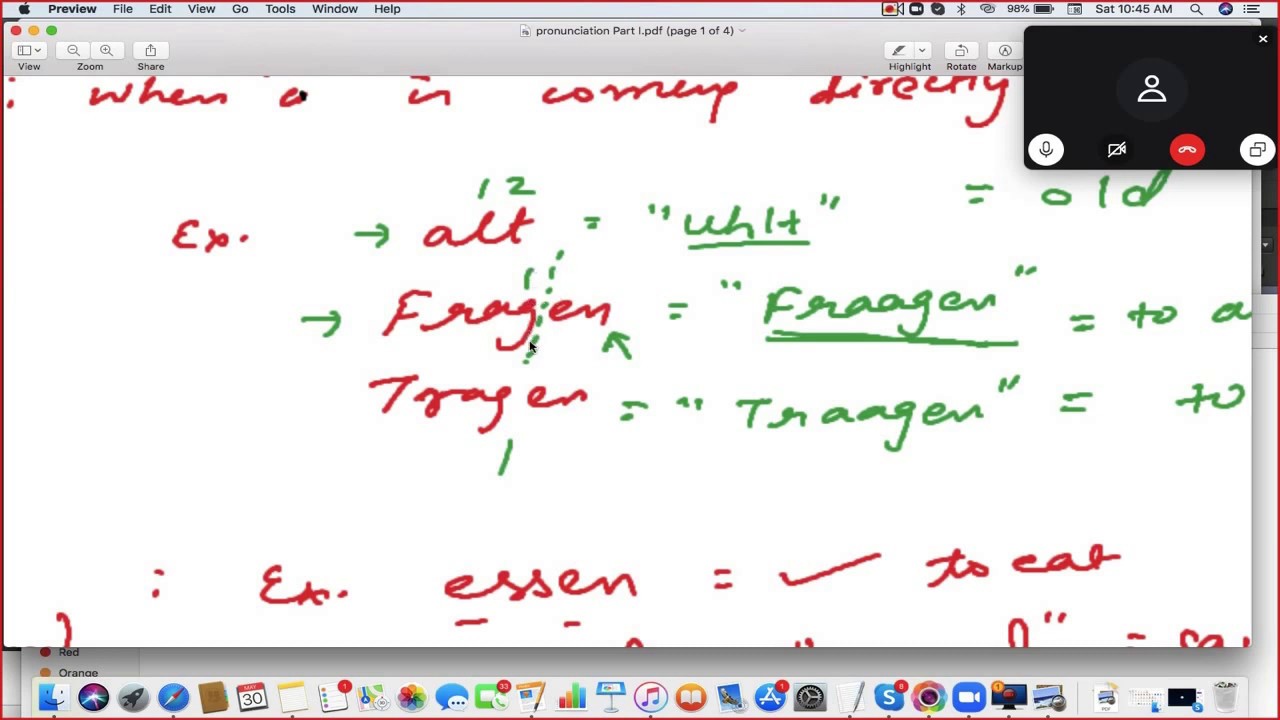 Preview File Edit View Go Tools Window Help 98% Sat 10:45 AM
pronunciation Part I.pdf (page 1 of 4)
View Zoom Share Highlight Rotate Markup
: when a in comeup directly
1 2
Ex. → alt = "uhlt" = old
1 1
→ Fragen = "Fraagen" = to a
Tragen = "Traagen" = to
1
: Ex. essen = ✓ to eat
Red
Orange
MAY
30
1
33
1
8
1